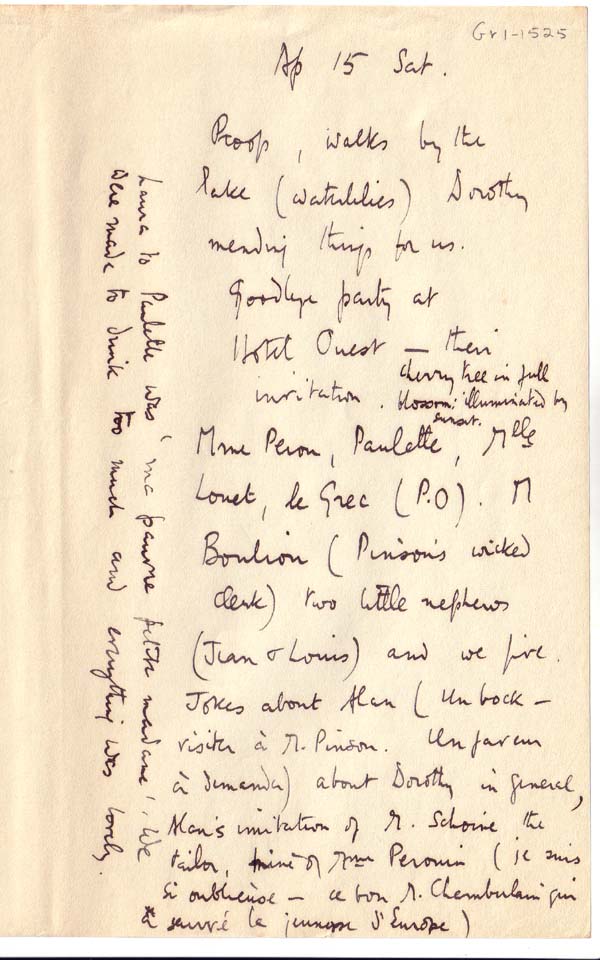 Gr1-1525
Ap 15 Sat.
Proofs, walks by the
lake (waterlilies) Dorothy
mending things for us.
Goodbye party at
Hotel Ouest — their
invitation. cherry tree in full
blossom: illuminated by
sunset.
Mme Peron, Paulette, Mlle
Louet, le Grec (P.O). M
Boulion (Pinson's wicked
clerk) two little nephews
(Jean & Louis) and we five.
Jokes about Alan (Un bock —
visiter à M. Pinson. Un faveur
à demander) about Dorothy in general,
Alan's imitation of M. the
tailor, mine of Mme (je suis
si oublieuse — ce bon M. Chamberlain qui
a sauvé la jeunesse d'Europe)
Laura to Paulette was 'ma pauvre petite madame'. We
were made to drink too much and everything was lovely.